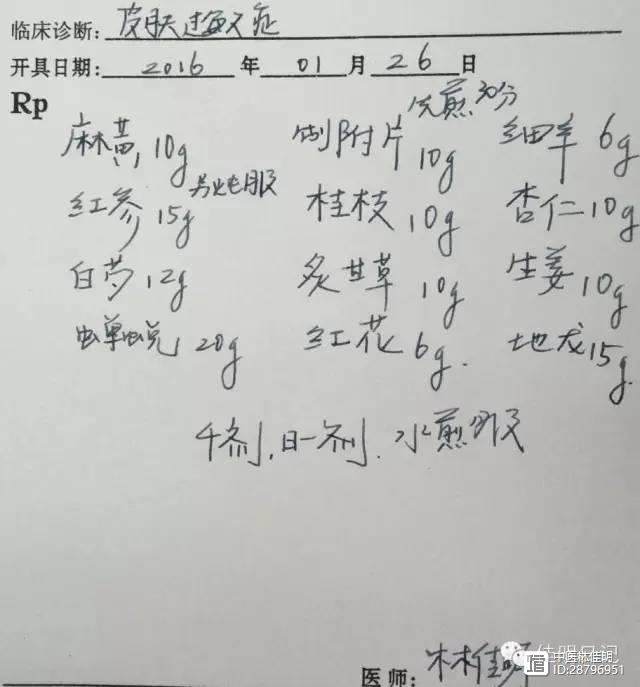 临床诊断: 皮肤过敏症
开具日期: 2016 年 01 月 26 日
Rp
先煎30分
麻黄 10g 制附片 10g 细辛 6g
另炖服
红参 15g 桂枝 10g 杏仁 10g
白芍 12g 炙甘草 10g 生姜 10g
蝉蜕 20g 红花 6g. 地龙 15g.
4剂,日一剂.水煎服
医师: 林佳明
佳明日记
中医林佳明
ID:28796951